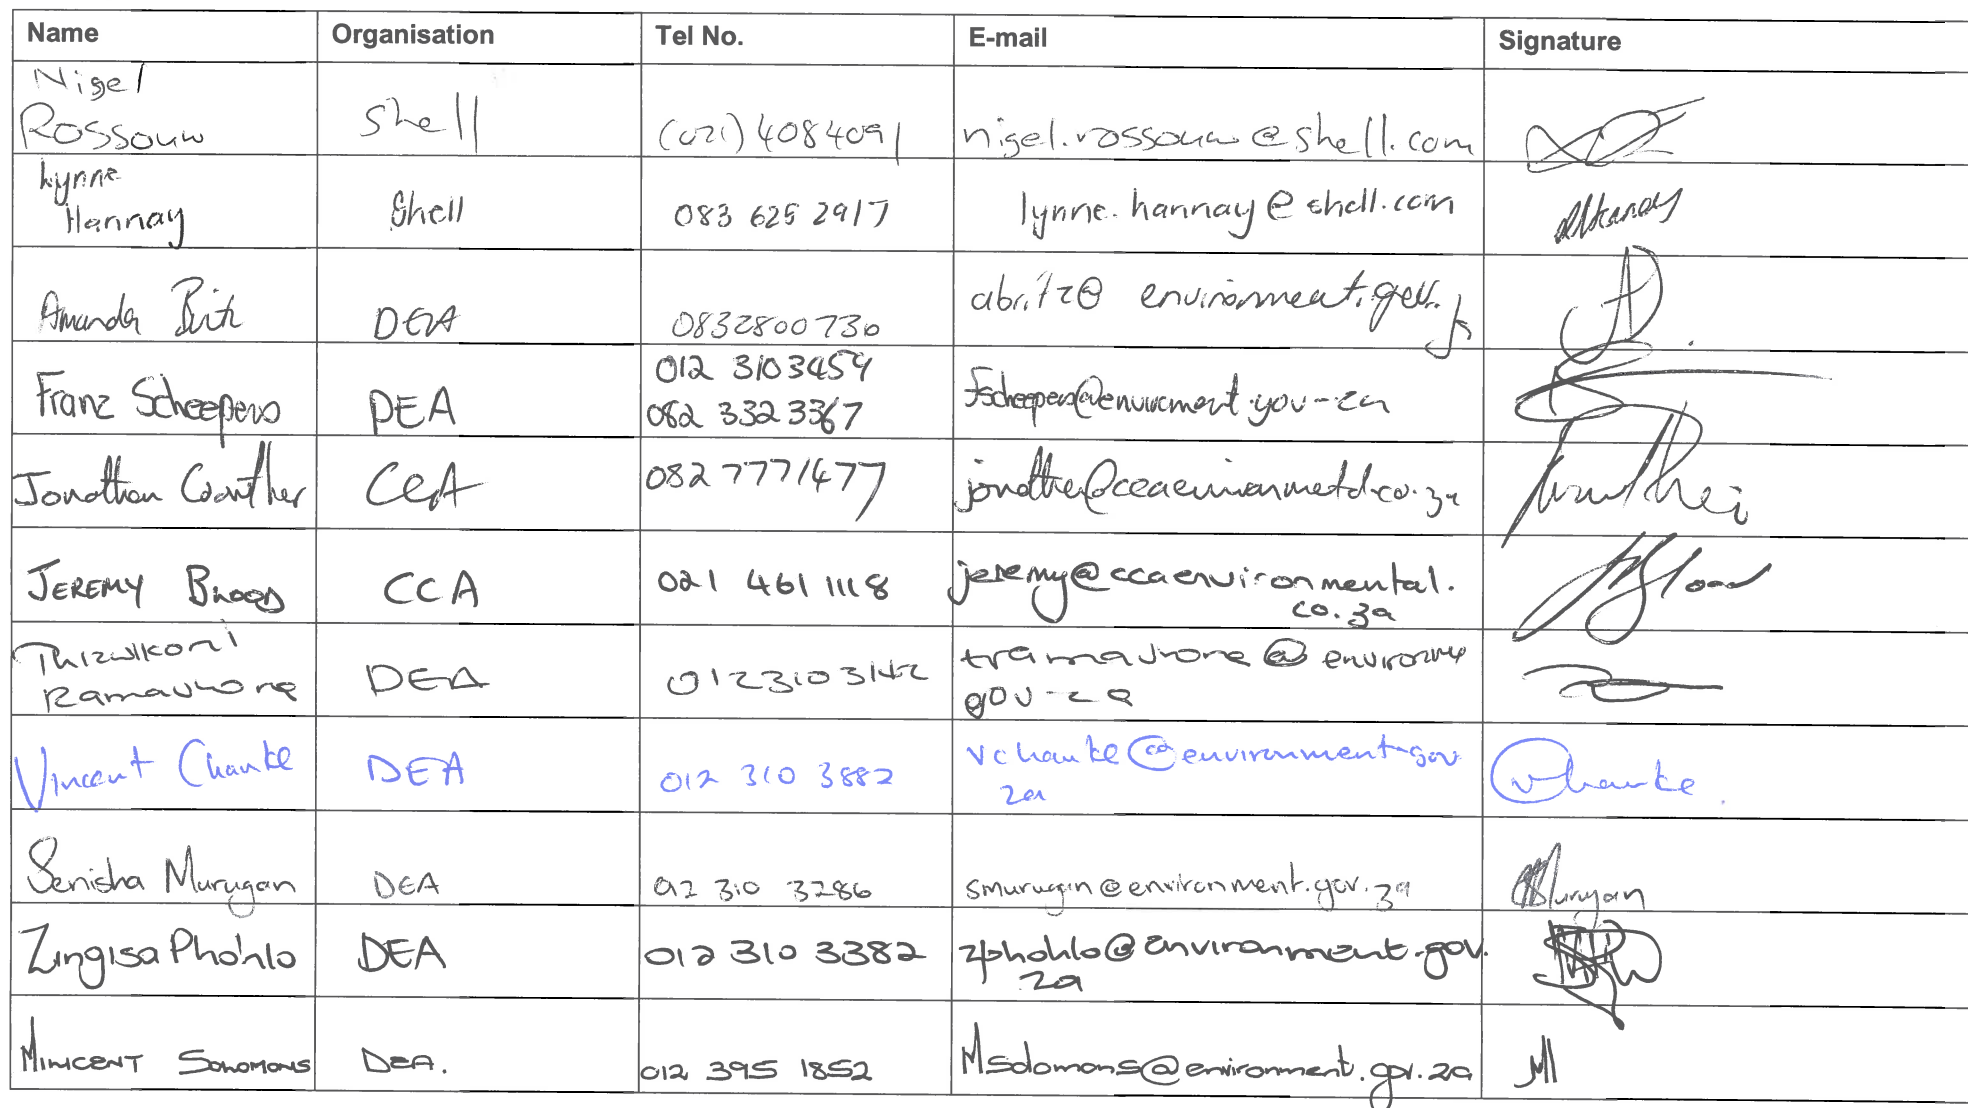 Name Organisation Tel No. E-mail Signature
Nigel
Rossouw Shell (021) 4084091 nigel.rossouw@shell.com
Lynne
Hannay Shell 083 625 2917 lynne.hannay@shell.com
Amanda Britz DEA 0832800730 abritz@environment.gov.
012 3103459
Franz Scheepers DEA Fscheepers@environment.gov-za
082 332 3367
Jonathan Crowther CCA 082 7771477
Jeremy Blood CCA 021 461 1118 jeremy@ccaenvironmental.
co.za
Ramavhona DEA 0123103142
gov-za
Vincent Chauke DEA 012 310 3882 vchauke@environment-gov
za Chauke.
Senisha Murugan DEA 012 310 3286 smurugan@environment.gov.za Murugan
Zingisa Phohlo DEA 012 310 3382 zphohlo@environment.gov.
za
Solomons DEA. 012 395 1852 Msolomons@environment.gov.za